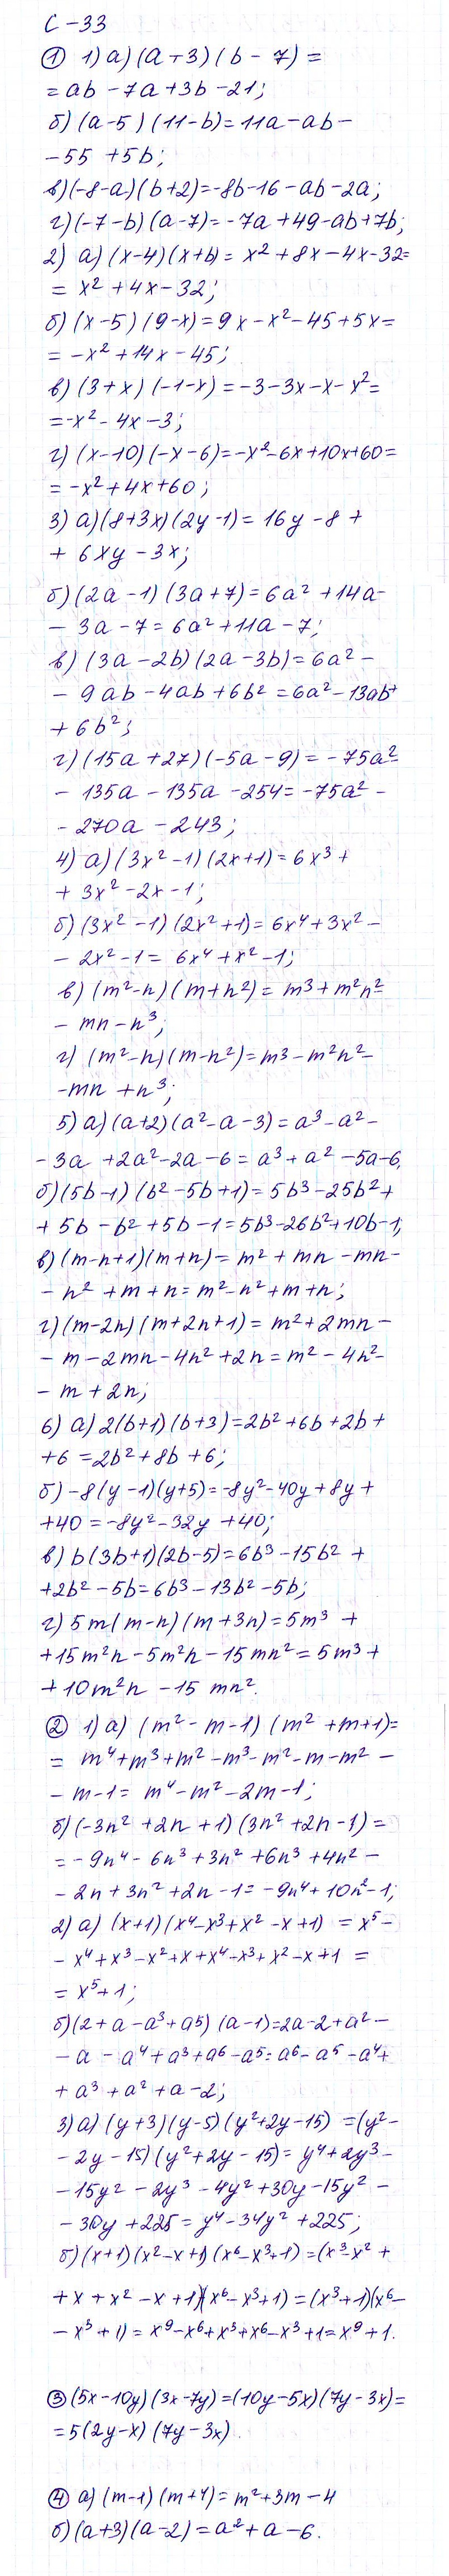 С-33
① 1) а) (a+3)(b-7) =
= ab - 7a + 3b - 21;
б) (a-5)(11-b) = 11a - ab -
- 55 + 5b;
в) (-8-a)(b+2) = -8b - 16 - ab - 2a;
г) (-7-b)(a-7) = -7a + 49 - ab + 7b;
2) а) (x-4)(x+b) = x² + 8x - 4x - 32 =
= x² + 4x - 32;
б) (x-5)(9-x) = 9x - x² - 45 + 5x =
= -x² + 14x - 45;
в) (3+x)(-1-x) = -3 - 3x - x - x² =
= -x² - 4x - 3;
г) (x-10)(-x-6) = -x² - 6x + 10x + 60 =
= -x² + 4x + 60;
3) а) (8+3x)(2y-1) = 16y - 8 +
+ 6xy - 3x;
б) (2a-1)(3a+7) = 6a² + 14a -
- 3a - 7 = 6a² + 11a - 7;
в) (3a-2b)(2a-3b) = 6a² -
- 9ab - 4ab + 6b² = 6a² - 13ab +
+ 6b²;
г) (15a+27)(-5a-9) = -75a² -
- 135a - 135a - 254 = -75a² -
- 270a - 243;
4) а) (3x²-1)(2x+1) = 6x³ +
+ 3x² - 2x - 1;
б) (3x²-1)(2x²+1) = 6x⁴ + 3x² -
- 2x² - 1 = 6x⁴ + x² - 1;
в) (m²-n)(m+n²) = m³ + m²n² -
- mn - n³;
г) (m²-n)(m-n²) = m³ - m²n² -
- mn + n³;
5) а) (a+2)(a²-a-3) = a³ - a² -
- 3a + 2a² - 2a - 6 = a³ + a² - 5a - 6.
б) (5b-1)(b²-5b+1) = 5b³ - 25b² +
+ 5b - b² + 5b - 1 = 5b³ - 26b² + 10b - 1;
в) (m-n+1)(m+n) = m² + mn - mn -
- n² + m + n = m² - n² + m + n;
г) (m-2n)(m+2n+1) = m² + 2mn -
- m - 2mn - 4n² + 2n = m² - 4n² -
- m + 2n;
6) а) 2(b+1)(b+3) = 2b² + 6b + 2b +
+ 6 = 2b² + 8b + 6;
б) -8(y-1)(y+5) = -8y² - 40y + 8y +
+ 40 = -8y² - 32y + 40;
в) b(3b+1)(2b-5) = 6b³ - 15b² +
+ 2b² - 5b = 6b³ - 13b² - 5b;
г) 5m(m-n)(m+3n) = 5m³ +
+ 15m²n - 5m²n - 15mn² = 5m³ +
+ 10m²n - 15mn².
② 1) а) (m²-m-1)(m²+m+1) =
= m⁴ + m³ + m² - m³ - m² - m - m² -
- m - 1 = m⁴ - m² - 2m - 1;
б) (-3n²+2n+1)(3n²+2n-1) =
= -9n⁴ - 6n³ + 3n² + 6n³ + 4n² -
- 2n + 3n² + 2n - 1 = -9n⁴ + 10n² - 1;
2) а) (x+1)(x⁴-x³+x²-x+1) = x⁵ -
- x⁴ + x³ - x² + x + x⁴ - x³ + x² - x + 1 =
= x⁵ + 1;
б) (2+a-a³+a⁵)(a-1) = 2a - 2 + a² -
- a - a⁴ + a³ + a⁶ - a⁵ = a⁶ - a⁵ - a⁴ +
+ a³ + a² + a - 2;
3) а) (y+3)(y-5)(y²+2y-15) = (y² -
- 2y - 15)(y² + 2y - 15) = y⁴ + 2y³ -
- 15y² - 2y³ - 4y² + 30y - 15y² -
- 30y + 225 = y⁴ - 34y² + 225;
б) (x+1)(x²-x+1)(x⁶-x³+1) = (x³ - x² +
+ x + x² - x + 1)(x⁶ - x³ + 1) = (x³+1)(x⁶ -
- x³ + 1) = x⁹ - x⁶ + x³ + x⁶ - x³ + 1 = x⁹ + 1.
③ (5x-10y)(3x-7y) = (10y-5x)(7y-3x) =
= 5(2y-x)(7y-3x).
④ а) (m-1)(m+4) = m² + 3m - 4
б) (a+3)(a-2) = a² + a - 6.